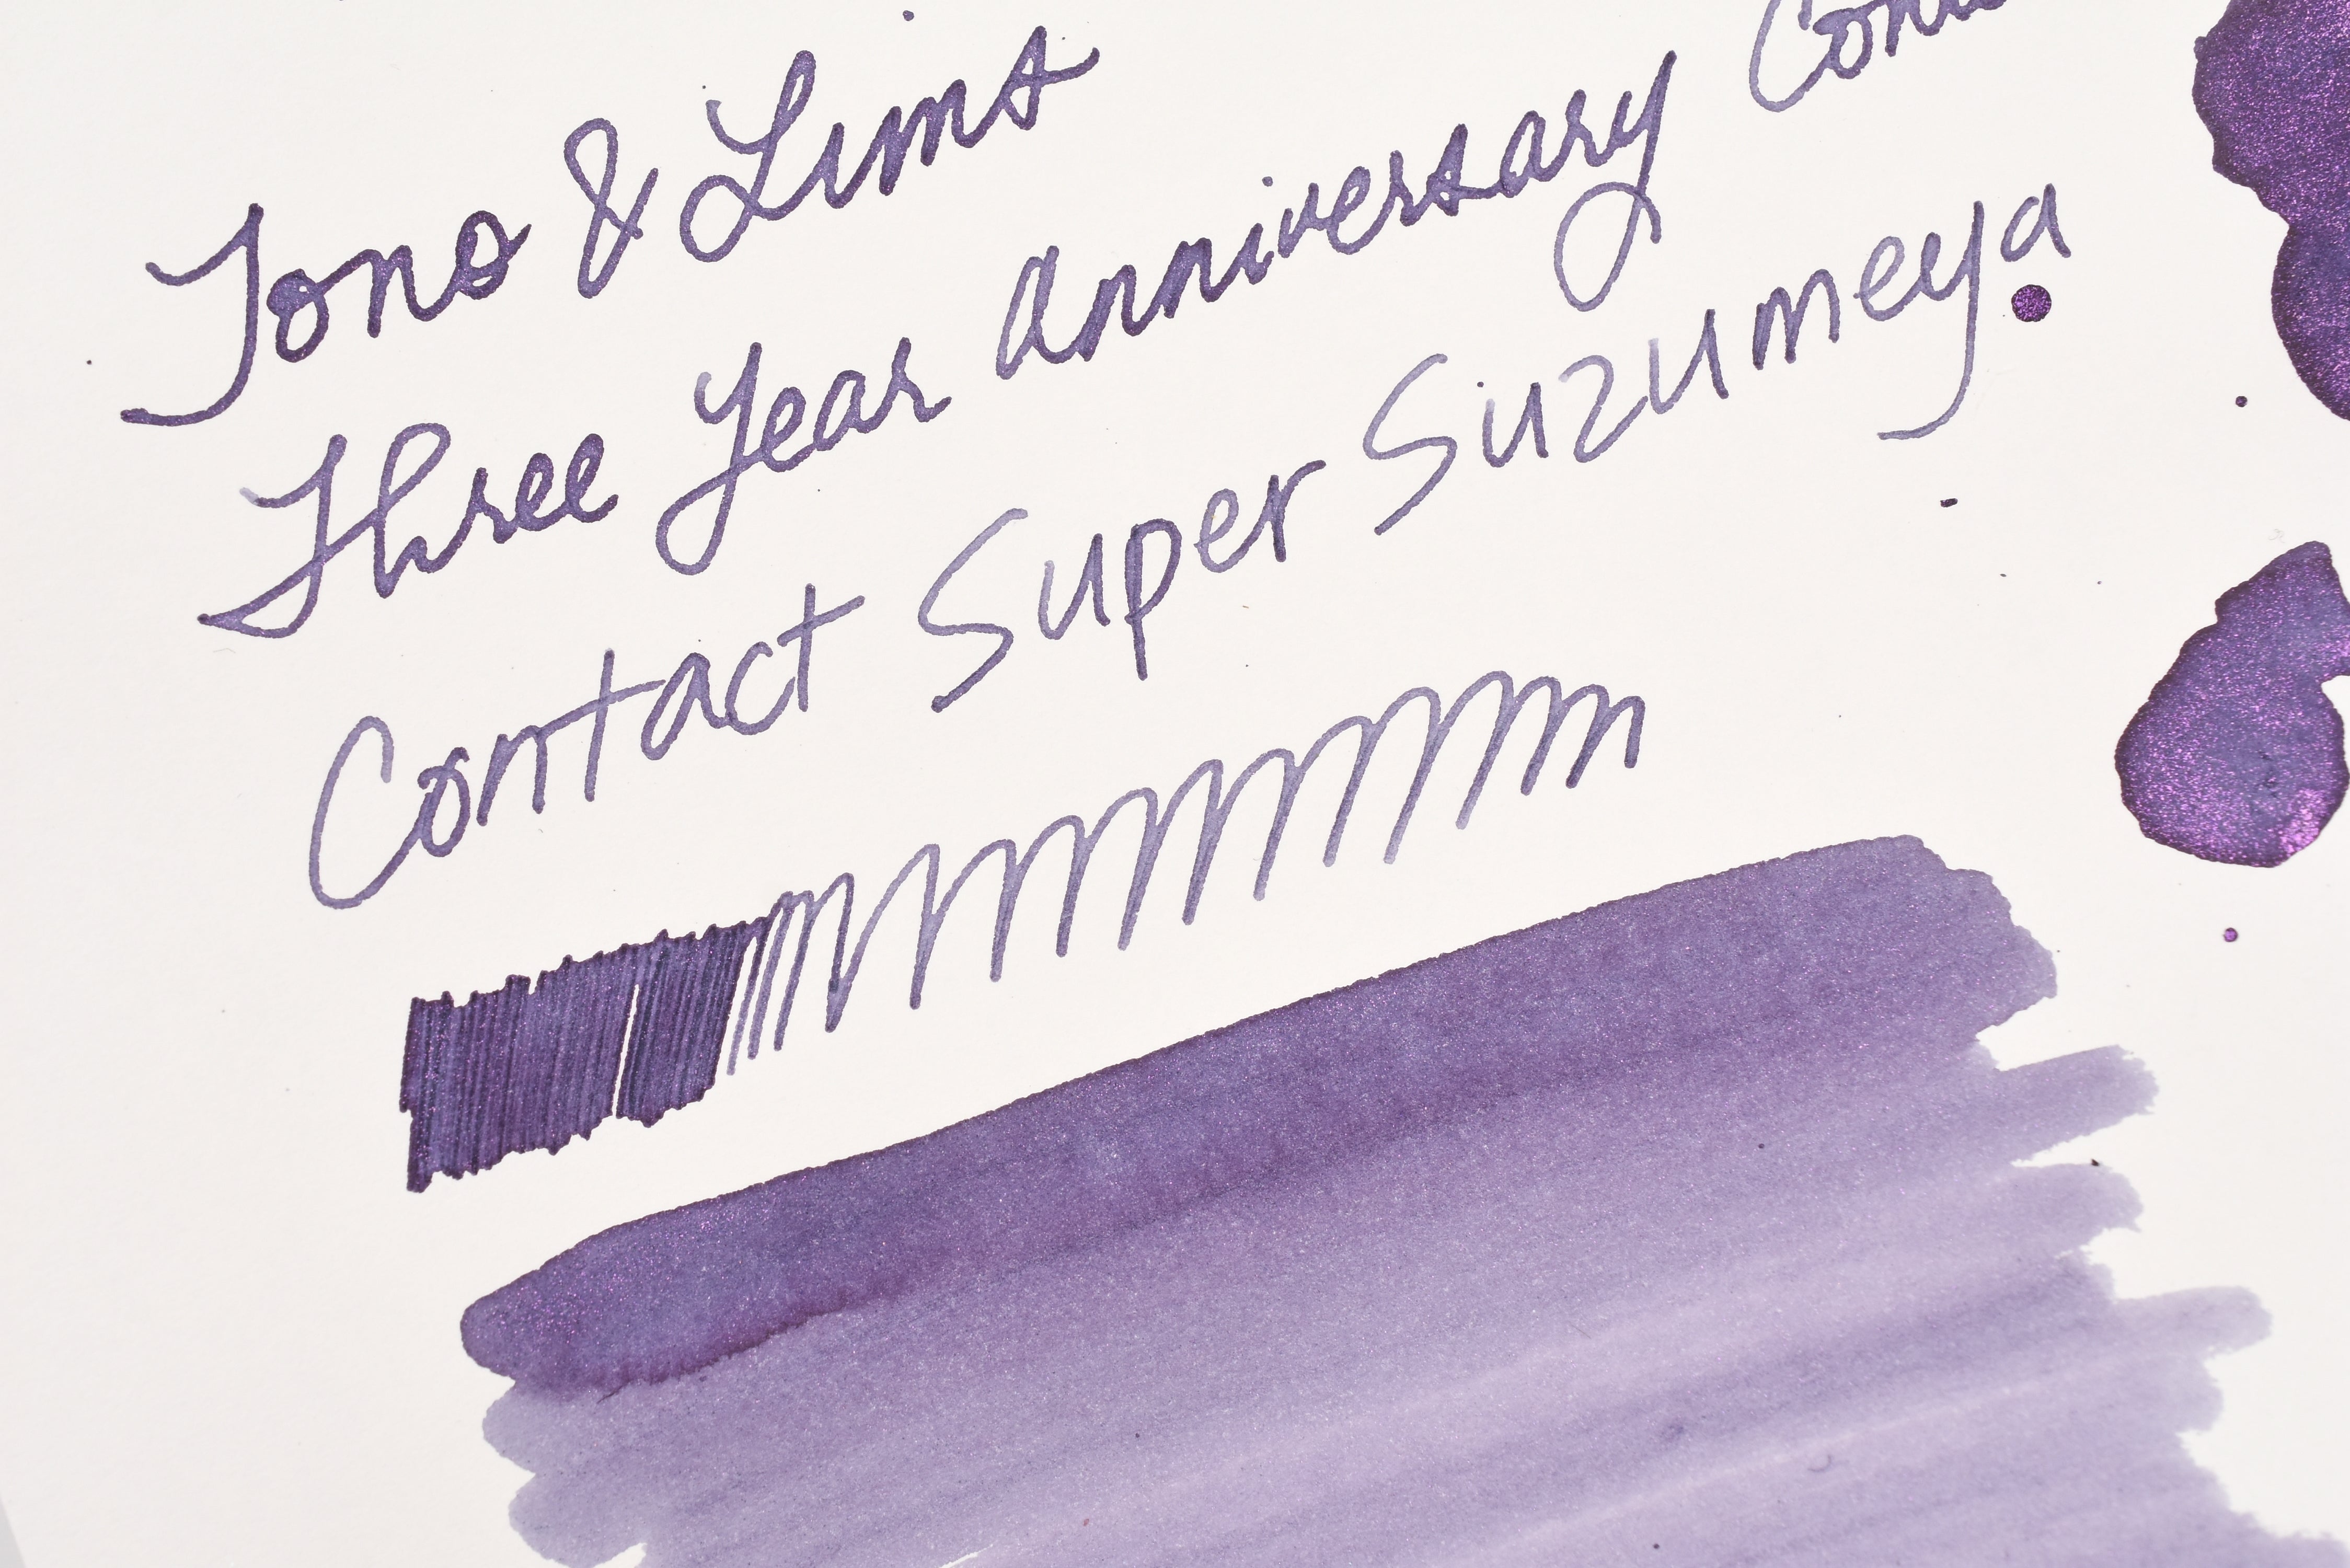 Tono & Lims
Three Year Anniversary
Contact Super Suzumeya